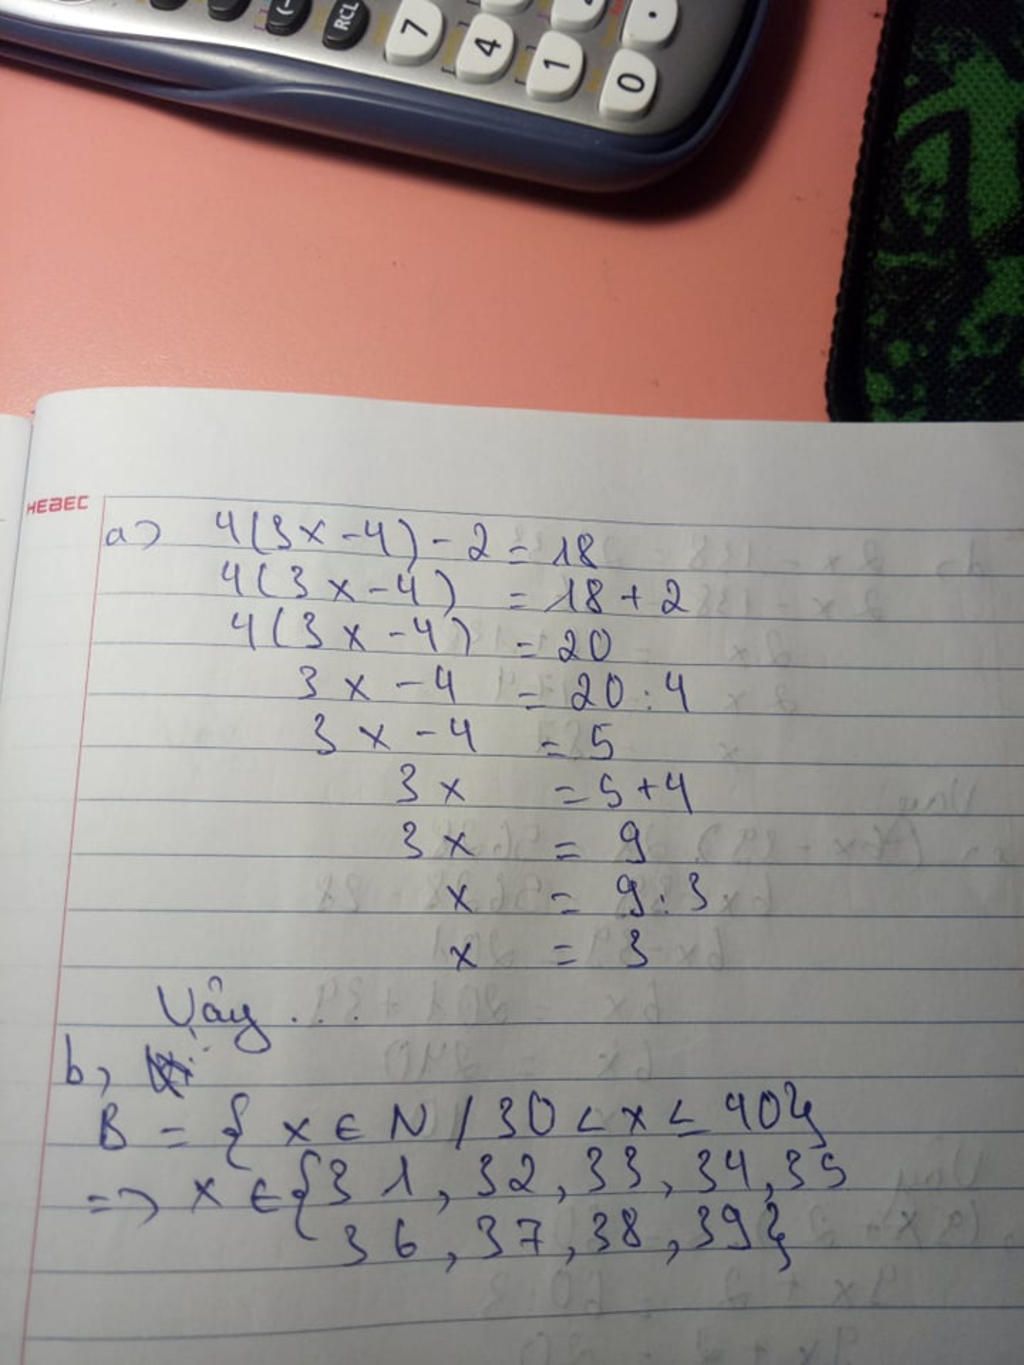 RCL
7
4
1
0
HEBEC
a) 4(3x-4)-2=18
4(3x-4) = 18+2
4(3x-4) = 20
3x-4 = 20:4
3x-4 = 5
3x = 5+4
3x = 9
x = 9:3
x = 3
Vậy...
b,
B = { x ∈ N / 30 < x ≤ 40}
=> x ∈ {31, 32, 33, 34, 35
36, 37, 38, 39}